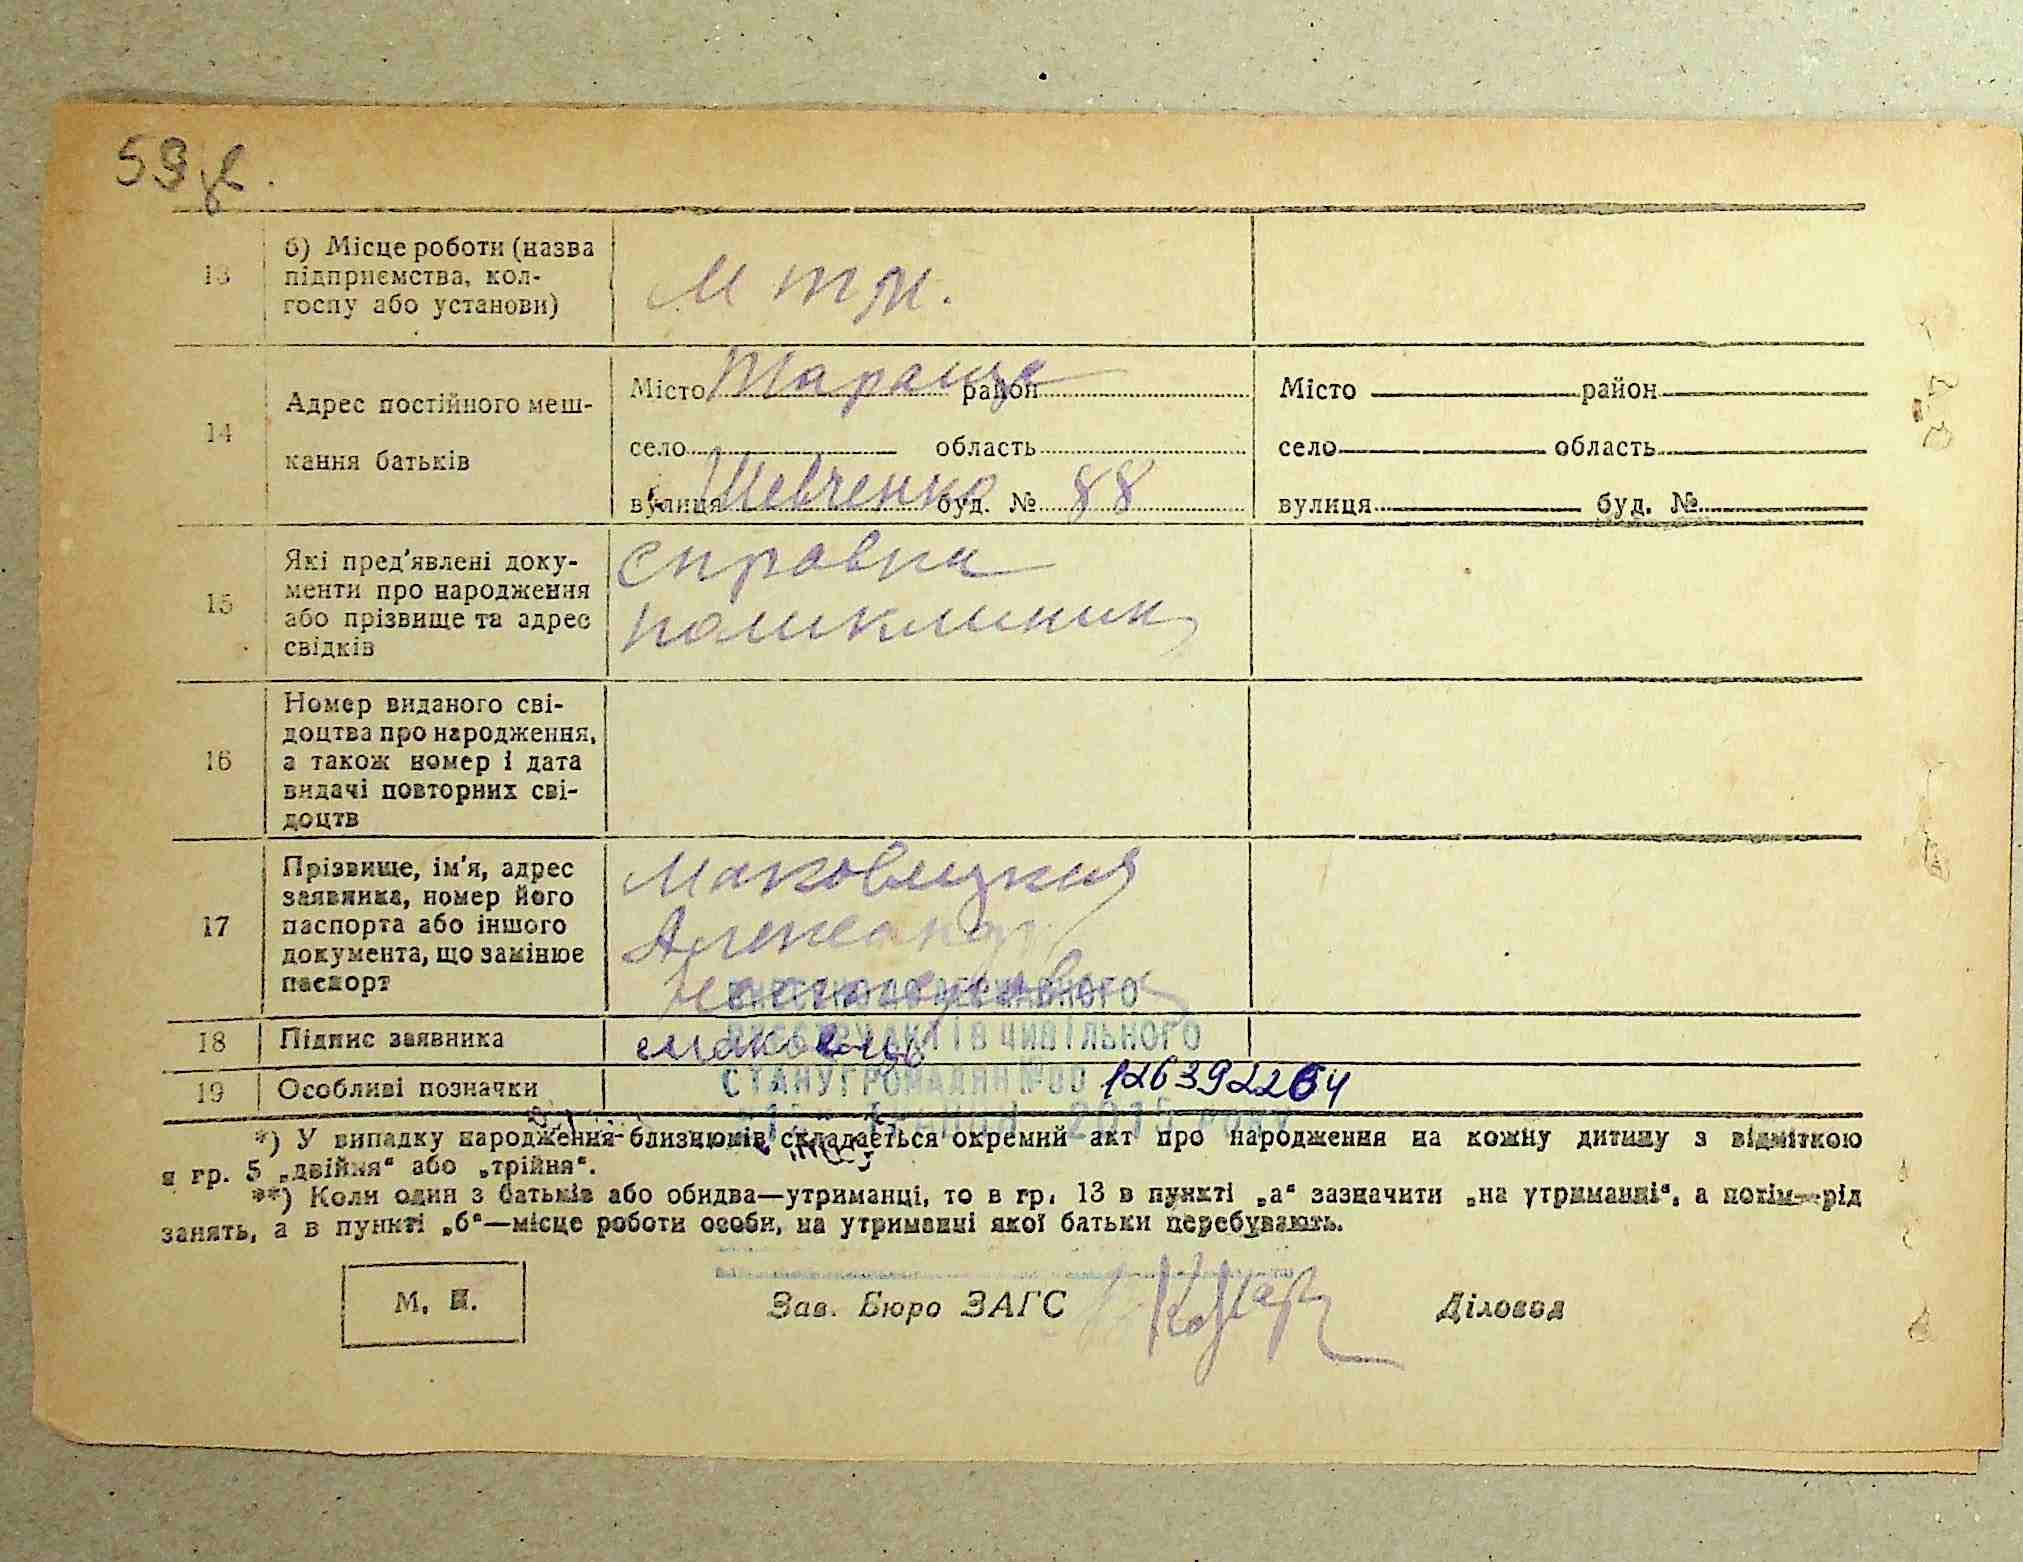 59
13
б) Місце роботи (назва
підприємства, кол-
госпу або установи)
М т м.
14
Адрес постійного меш-
кання батьків
Місто Тараща район
село область
вулиця Шевченко буд. № 88
Місто район
село область
вулиця буд. №
15
Які пред'явлені доку-
менти про народження
або прізвище та адрес
свідків
справка
16
Номер виданого сві-
доцтва про народження,
а також номер і дата
видачі повторних сві-
доцтв
17
Прізвище, ім'я, адрес
заявника, номер його
паспорта або іншого
документа, що замінює
паспорт
Маковецкий
18
Підпис заявника
19
Особливі позначки
ЦИВІЛЬНОГО
СТАНУ ГРОМАДЯН №00 126392264
2015 року
*) У випадку народження близнюків складається окремий акт про народження на кожну дитину з відміткою
в гр. 5 „двійня“ або „трійня“.
**) Коли один з батьків або обидва—утриманці, то в гр. 13 в пункті „а“ зазначити „на утриманні“, а потім—рід
занять, а в пункті „б“—місце роботи особи, на утриманні якої батьки перебувають.
М. П.
Зав. Бюро ЗАГС
Діловод